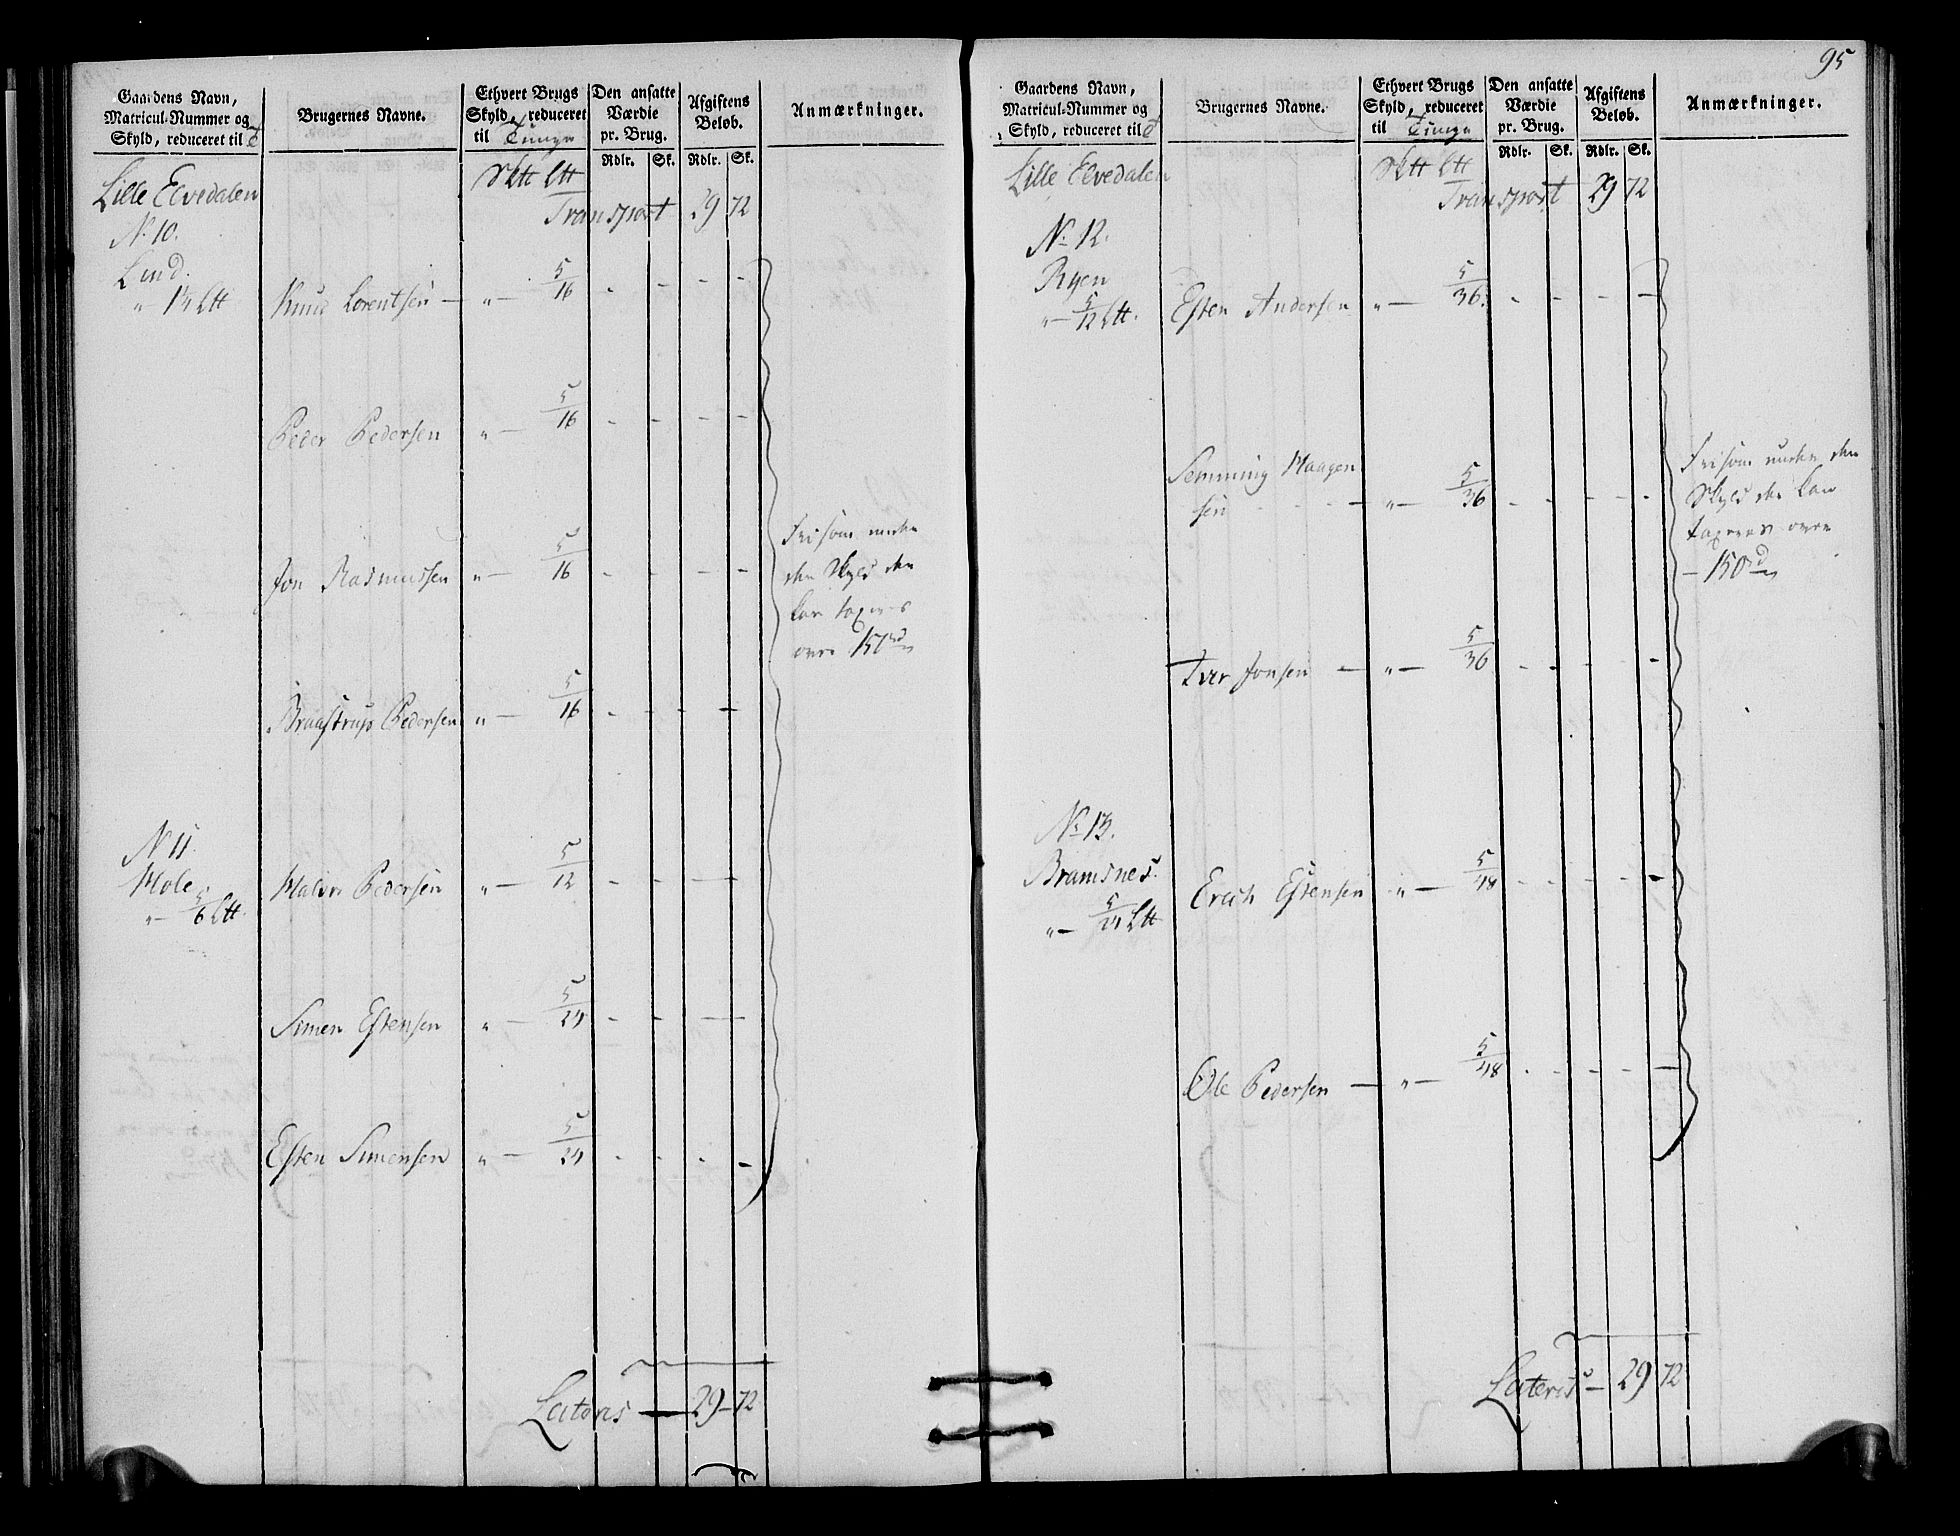 95
Gaardens Navn, Matricul-Nummer og Skyld, reduceret til T
Brugernes Navne.
Ethvert Brugs Skyld, reduceret til Tunge
Den ansatte Værdie pr. Brug.
Afgiftens Beløb.
Anmærkninger.
Rdlr. Sk. Rdlr. Sk.
Lille Elvedalen
Transport 29 72
N. 10.
Lund.
Knud Lorentsen — „ — 5/16 - - - -
Peder Pedersen „ — 5/16 - - - -
Jon Rasmussen „ — 5/16 - - - -
Fri som under
den Skyld der
kan taxeres
over 150 rd
Braastrup Pedersen „ — 5/16 - - - -
N 11.
Mole
„ — 5/6 Ltt.
Halvor Pedersen „ — 5/12 - - - -
Simen Estensen „ — 5/24 - - - -
Esten Simensen „ — 5/24 - - - -
Lateris — 29 — 72
Gaardens Navn, Matricul-Nummer og Skyld, reduceret til T
Brugernes Navne.
Ethvert Brugs Skyld, reduceret til Tunge
Den ansatte Værdie pr. Brug.
Afgiftens Beløb.
Anmærkninger.
Rdlr. Sk. Rdlr. Sk.
Lille Elvedalen
Transport 29 72
No 12.
Ryen
„ — 5/12 Ltt.
Esten Andersen „ — 5/36 - - - -
Semming Haagen
sen - - - — „ — 5/36 - - - -
Fri som under den
Skyld der kan
taxeres over
— 150 rd
Iver Jonsen — „ — 5/36 - - - -
No 13.
Bramsnes.
„ — 5/24 Ltt
Erich Estensen „ — 5/48 - - - -
Ole Pedersen — „ — 5/48 - - - -
Lateris — 29 72